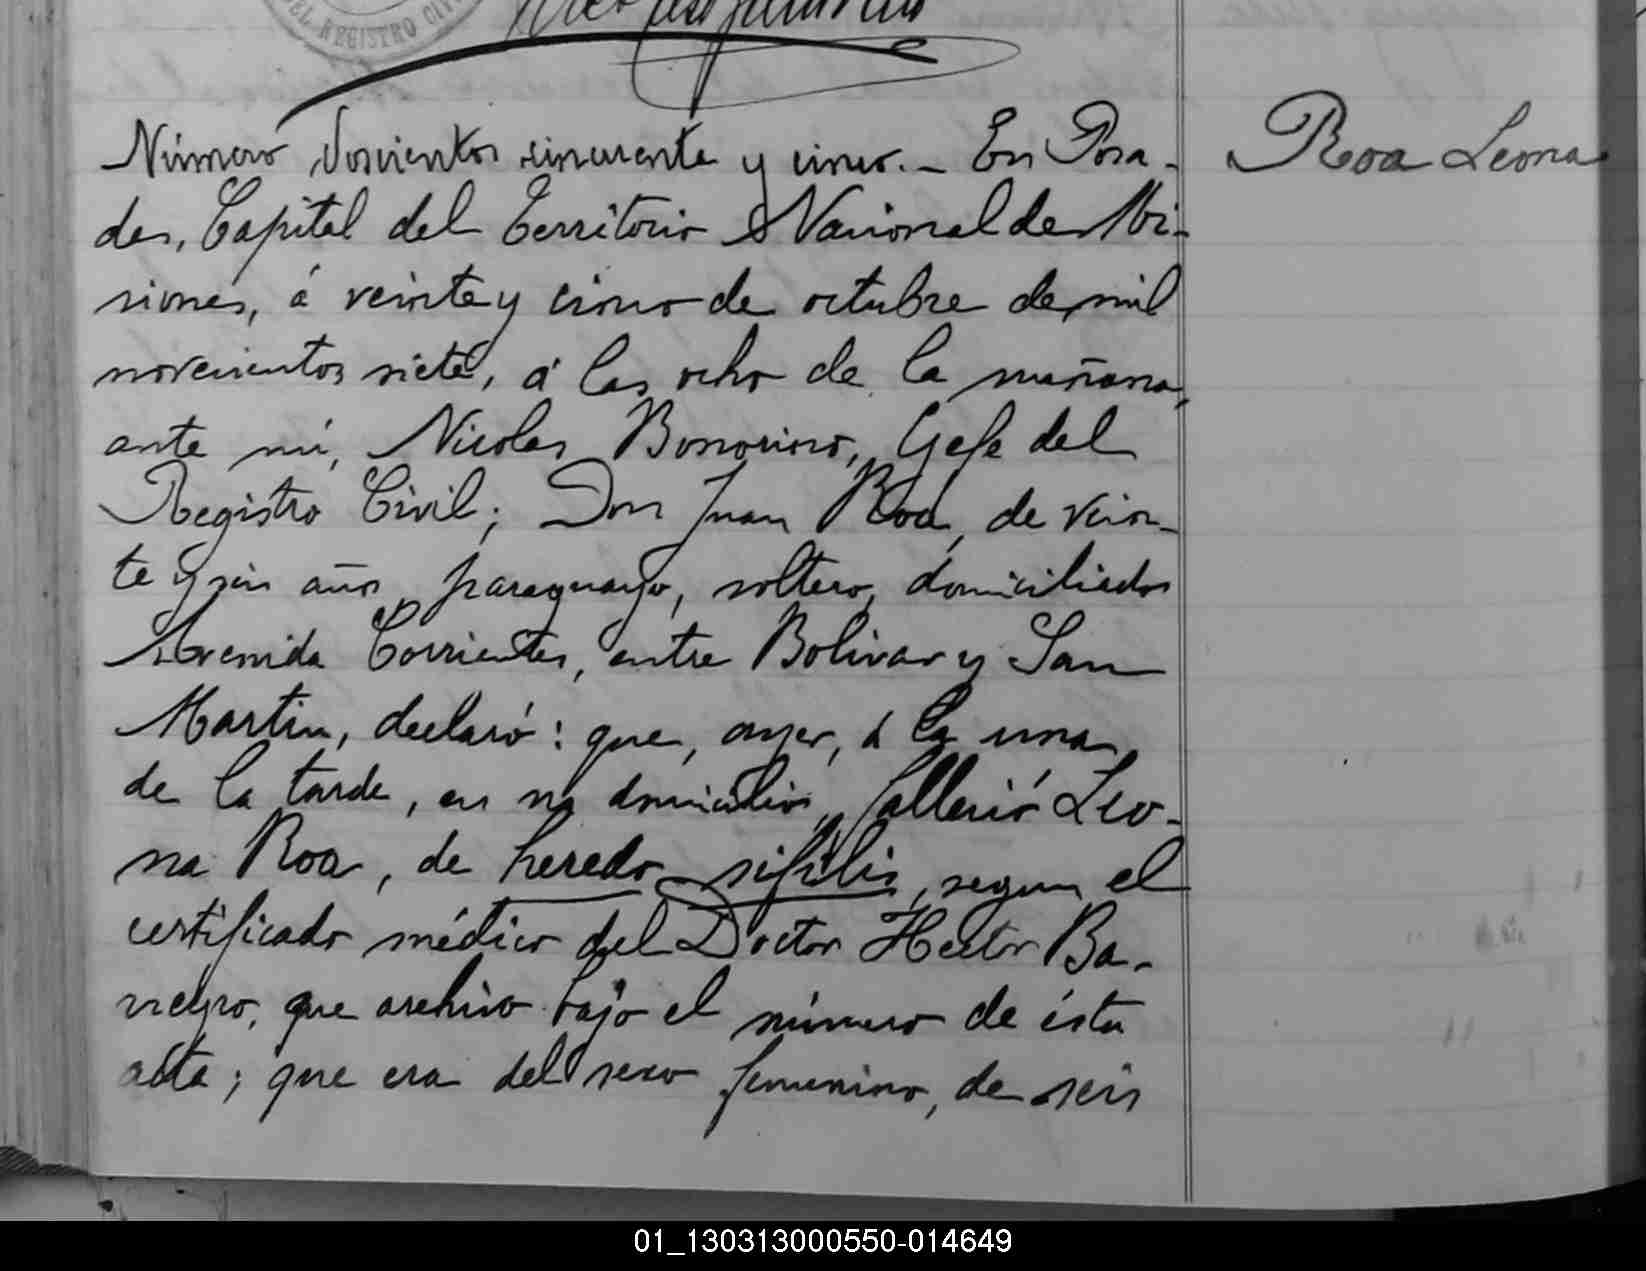 DEL REGISTRO CIVIL
Número doscientos cincuenta y cinco.- En Posa-
das, Capital del Territorio Nacional de Mi-
siones, á veinte y cinco de octubre de mil
novecientos siete, á las ocho de la mañana,
ante mí, Nicolas Bonorino, Gefe del
Registro Civil; Don Juan Roa, de vein-
te y seis años, paraguayo, soltero, domiciliado
Avenida Corrientes, entre Bolivar y San
Martin, declaró: que, ayer, á la una
de la tarde, en su domicilio, falleció Leo-
na Roa, de heredo-sifilis, segun el
certificado médico del Doctor Hector Ba-
rreyro, que archivo bajo el número de ésta
acta; que era del sexo femenino, de seis
Roa Leona
01_130313000550-014649